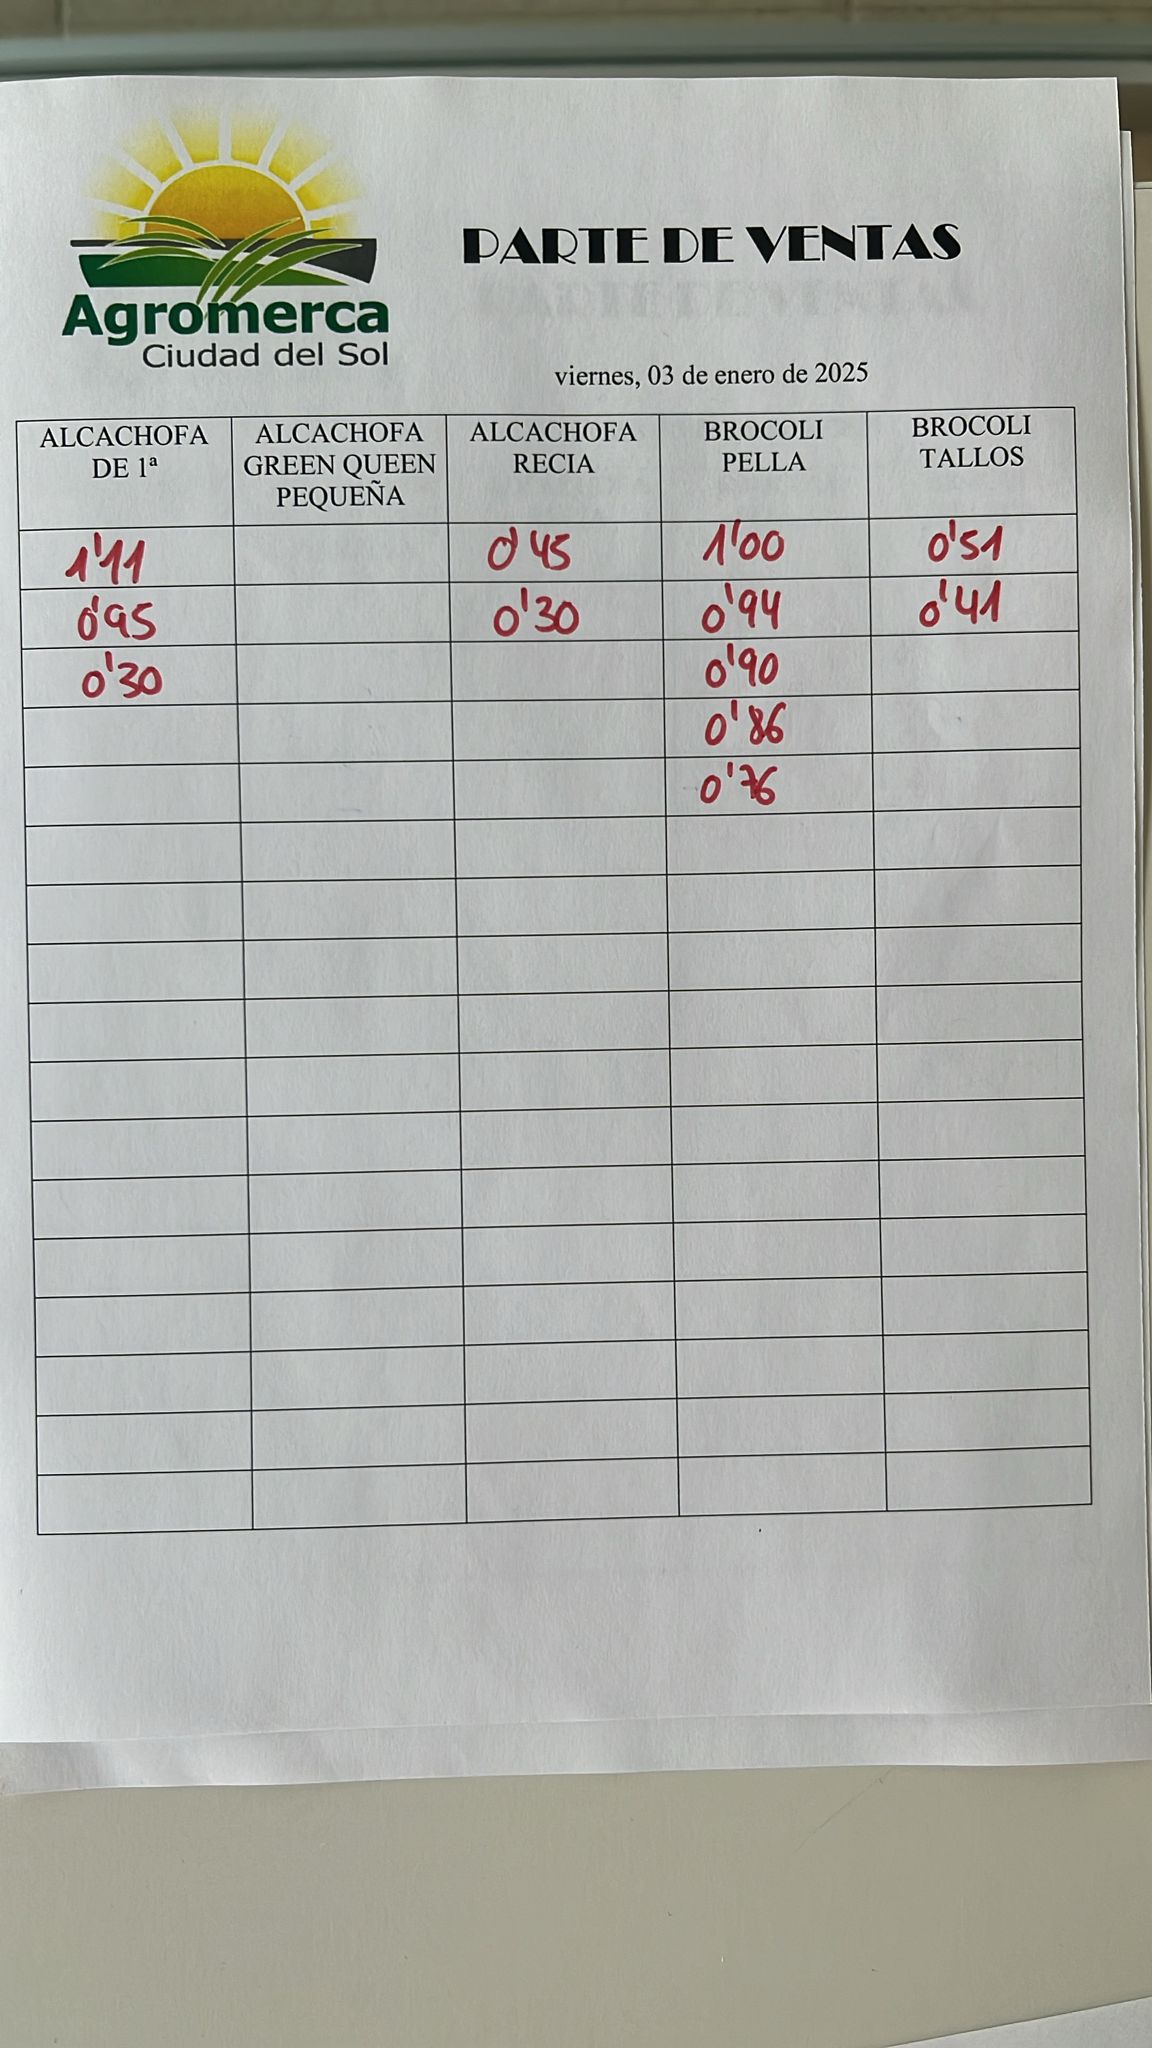 Agromerca
Ciudad del Sol
PARTE DE VENTAS
viernes, 03 de enero de 2025
ALCACHOFA DE 1ª | ALCACHOFA GREEN QUEEN PEQUEÑA | ALCACHOFA RECIA | BROCOLI PELLA | BROCOLI TALLOS
1'11 | | 0'45 | 1'00 | 0'51
0'95 | | 0'30 | 0'94 | 0'41
0'30 | | | 0'90 |
| | | 0'86 |
| | | 0'76 |